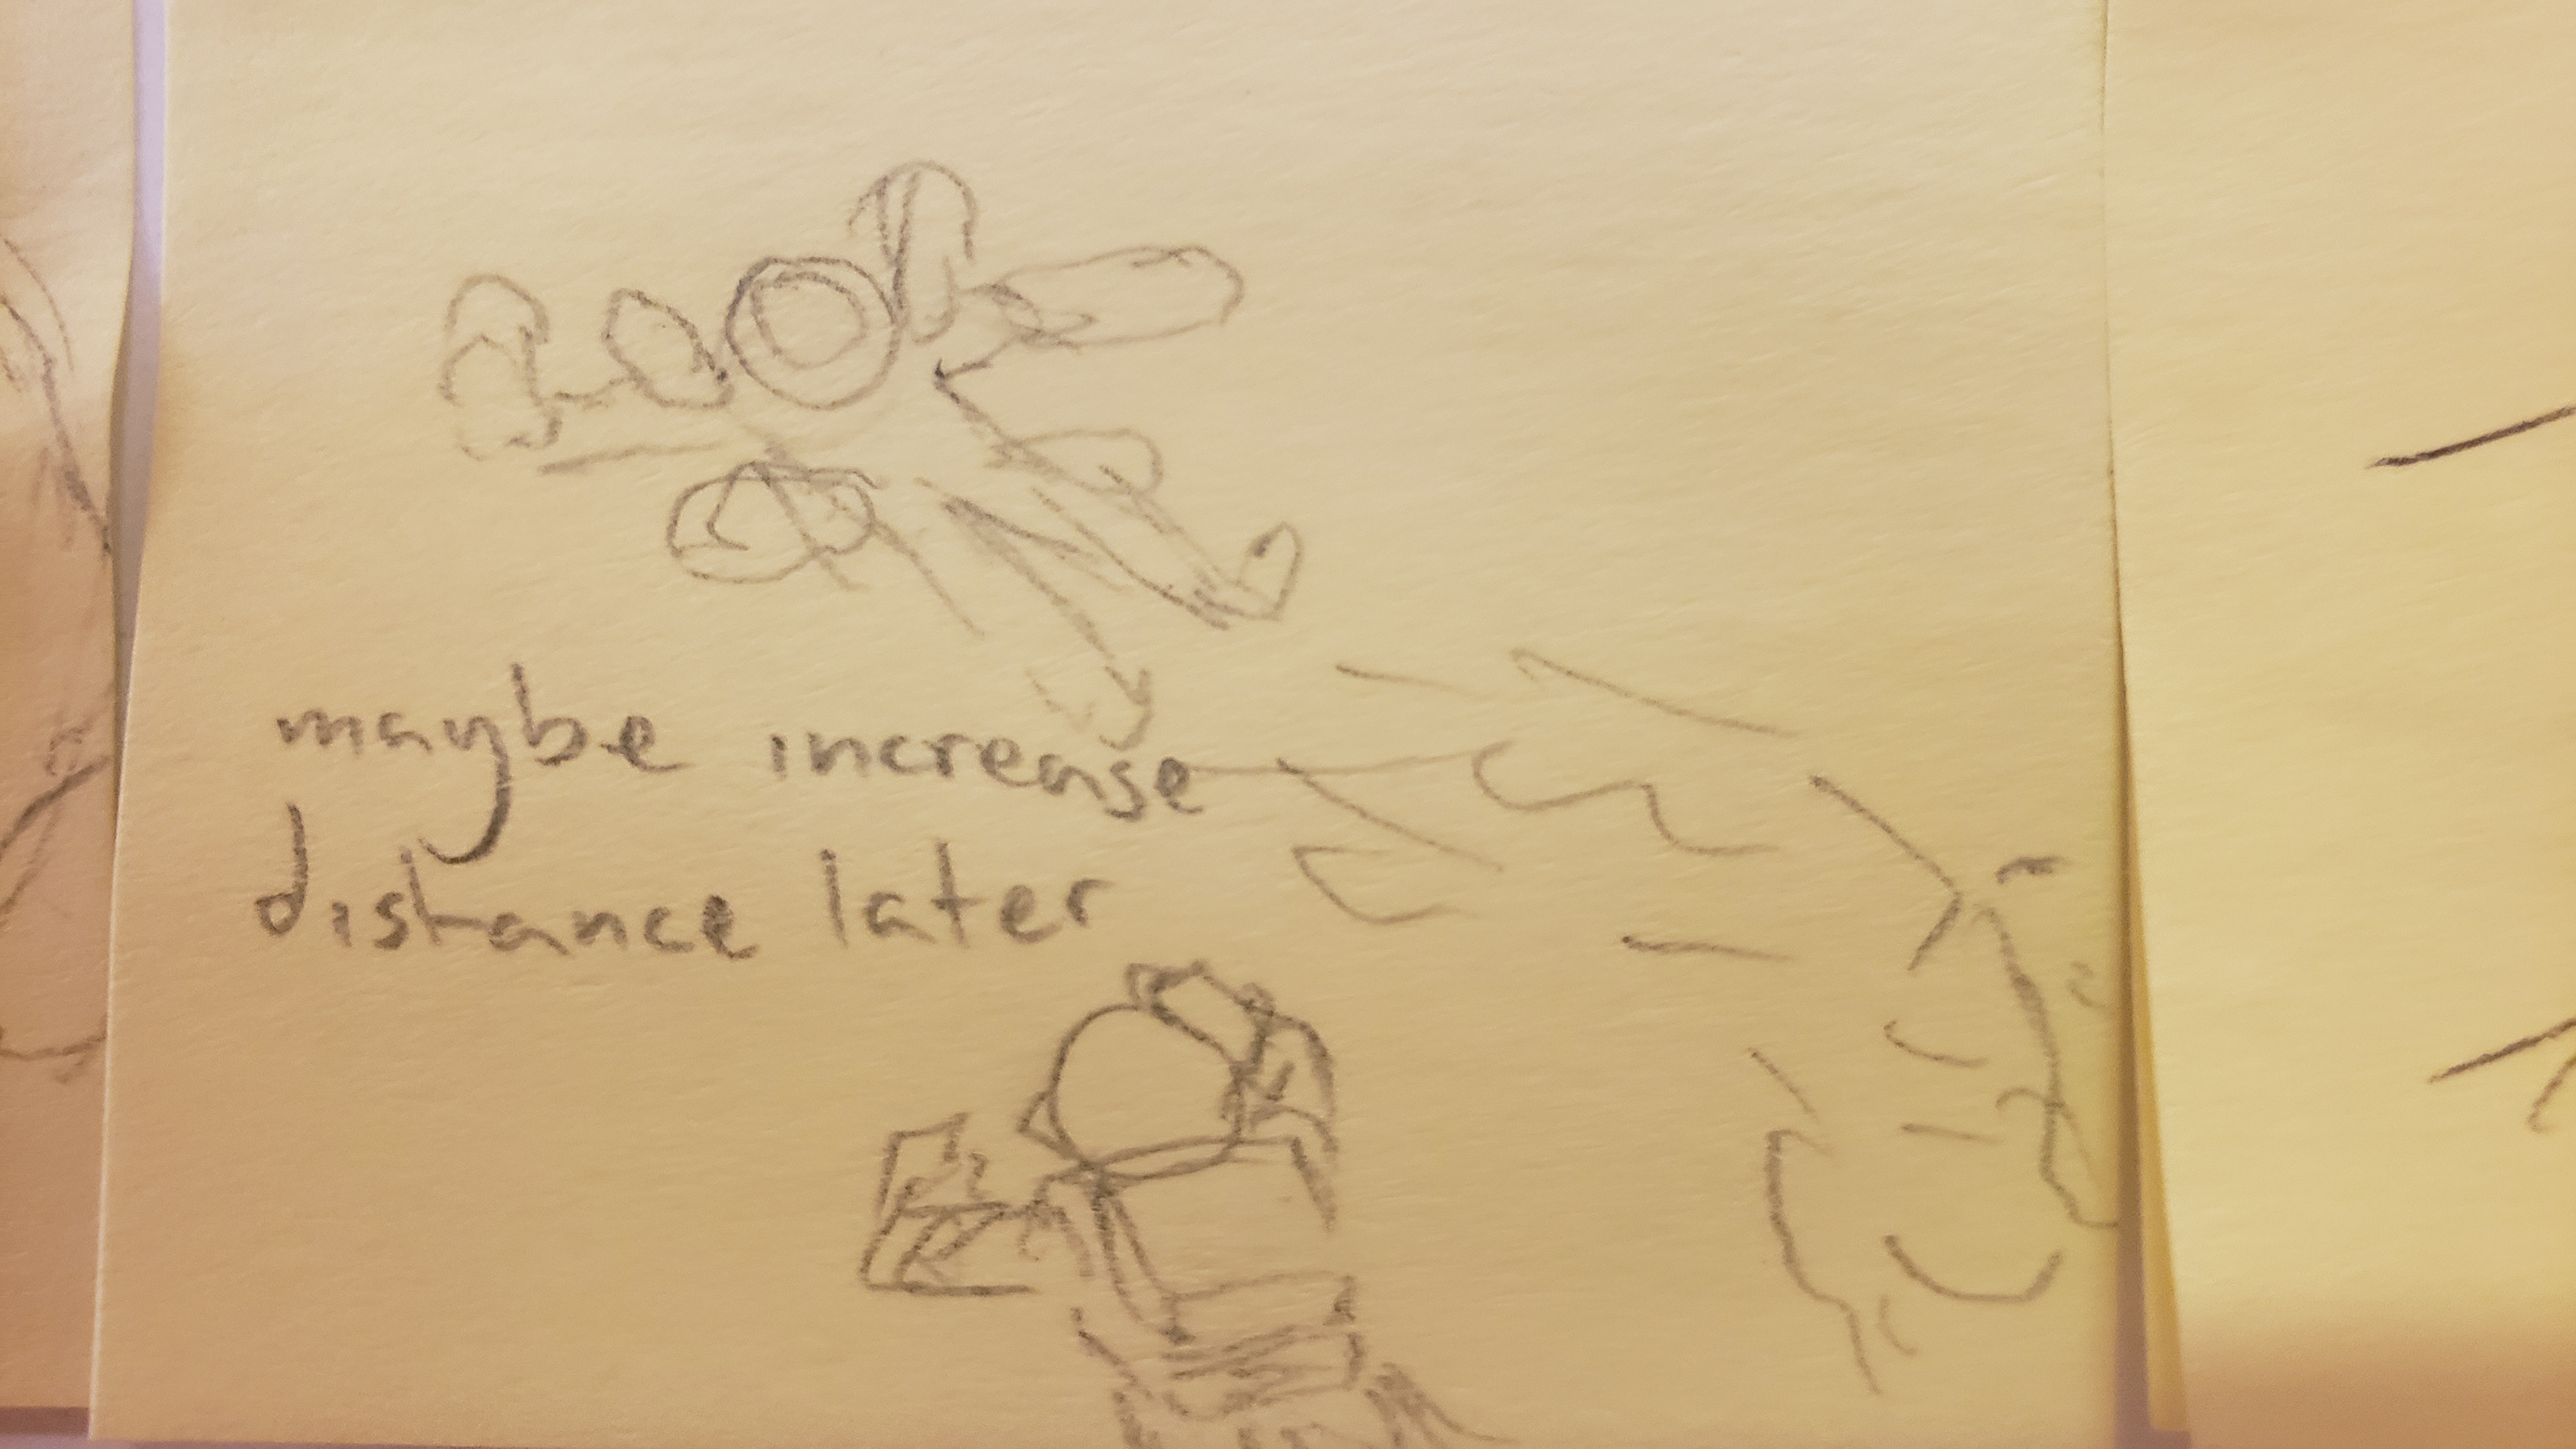 maybe increase
distance later